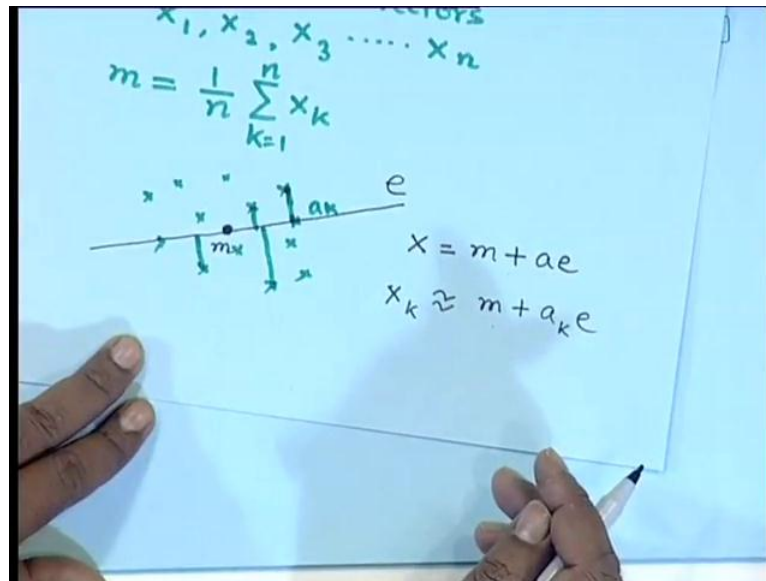 x₁, x₂, x₃ ..... xₙ
m = 1/n Σ_{k=1}^{n} x_k
e
a_k
m
x = m + ae
x_k ≈ m + a_k e